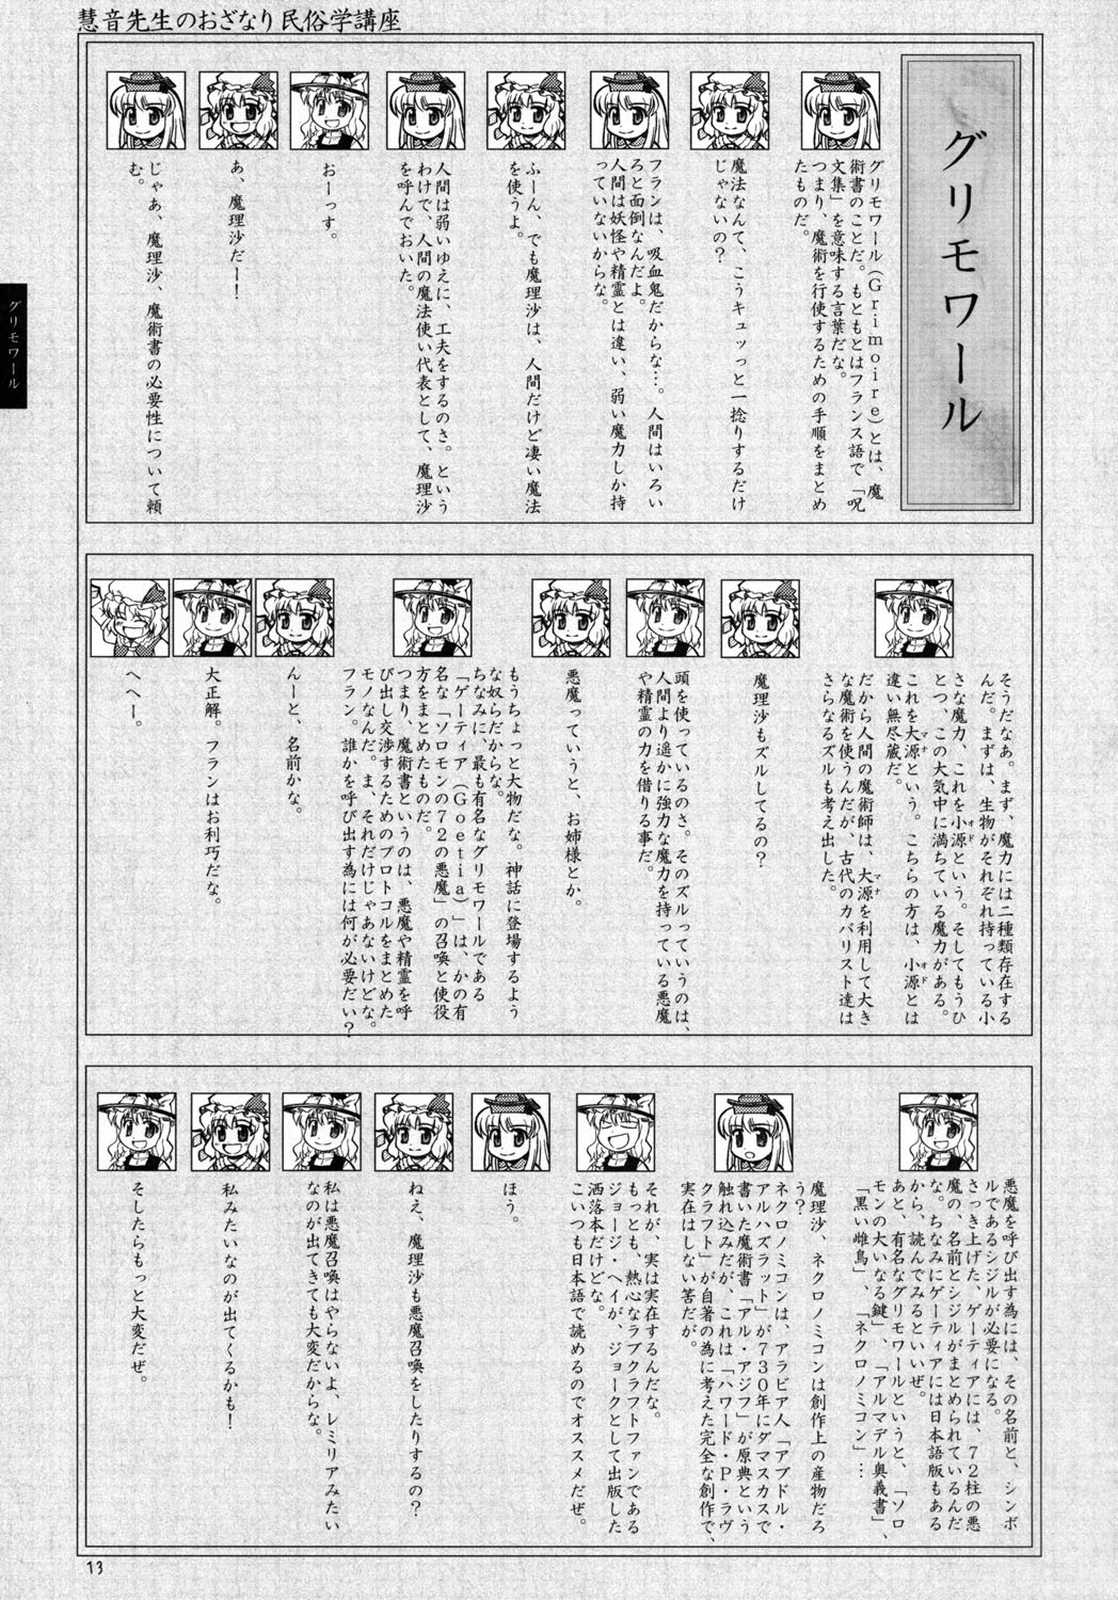 慧音先生のおざなり民俗学講座
グリモワール
グリモワール(Grimoire)とは、魔
術書のことだ。もともとはフランス語で「呪
文集」を意味する言葉だな。
つまり、魔術を行使するための手順をまとめ
たものだ。
魔法なんて、こうキュッっと一捻りするだけ
じゃないの?
フランは、吸血鬼だからな…。人間はいろい
ろと面倒なんだよ。
人間は妖怪や精霊とは違い、弱い魔力しか持
っていないからな。
ふーん、でも魔理沙は、人間だけど凄い魔法
を使うよ。
人間は弱いゆえに、工夫をするのさ。という
わけで、人間の魔法使い代表として、魔理沙
を呼んでおいた。
おーっす。
あ、魔理沙だー!
じゃあ、魔理沙、魔術書の必要性について頼
む。
そうだなあ。まず、魔力には二種類存在する
んだ。まずは、生物がそれぞれ持っている小
さな魔力、これを小源という。そしてもうひ
オド
とつ、この大気中に満ちている魔力がある。
これを大源という。こちらの方は、小源とは
マナ
オド
違い無尽蔵だ。
だから人間の魔術師は、大源を利用して大き
マナ
な魔術を使うんだが、古代のカバリスト達は
さらなるズルも考え出した。
魔理沙もズルしてるの?
頭を使っているのさ。そのズルっていうのは、
人間より遥かに強力な魔力を持っている悪魔
や精霊の力を借りる事だ。
悪魔っていうと、お姉様とか。
もうちょっと大物だな。神話に登場するよう
な奴らだからな。
ちなみに、最も有名なグリモワールである
「ゲーティア(Goetia)」は、かの有
名な「ソロモンの72の悪魔」の召喚と使役
方をまとめたものだ。
つまり、魔術書というのは、悪魔や精霊を呼
び出し交渉するためのプロトコルをまとめた
モノなんだ。ま、それだけじゃあないけどな。
フラン。誰かを呼び出す為には何が必要だい?
んーと、名前かな。
大正解。フランはお利巧だな。
へへー。
悪魔を呼び出す為には、その名前と、シンボ
ルであるシジルが必要になる。
さっき上げた、ゲーティアには、72柱の悪
魔の、名前とシジルがまとめられているんだ
な。ちなみにゲーティアには日本語版もある
から、読んでみるといいぜ。
あと、有名なグリモワールというと、「ソロ
モンの大いなる鍵」、「アルマデル奥義書」、
「黒い雌鳥」、「ネクロノミコン」…
魔理沙、ネクロノミコンは創作上の産物だろ
う?
ネクロノミコンは、アラビア人「アブドル・
アルハズラット」が730年にダマスカスで
書いた魔術書「アル・アジフ」が原典という
触れ込みだが、これは「ハワード・P・ラヴ
クラフト」が自著の為に考えた完全な創作で、
実在はしない筈だが。
それが、実は実在するんだな。
もっとも、熱心なラブクラフトファンである
ジョージ・ヘイが、ジョークとして出版した
洒落本だけどな。
こいつも日本語で読めるのでオススメだぜ。
ほう。
ねえ、魔理沙も悪魔召喚をしたりするの?
私は悪魔召喚はやらないよ、レミリアみたい
なのが出てきても大変だからな。
私みたいなのが出てくるかも!
そしたらもっと大変だぜ。
グリモワール
13